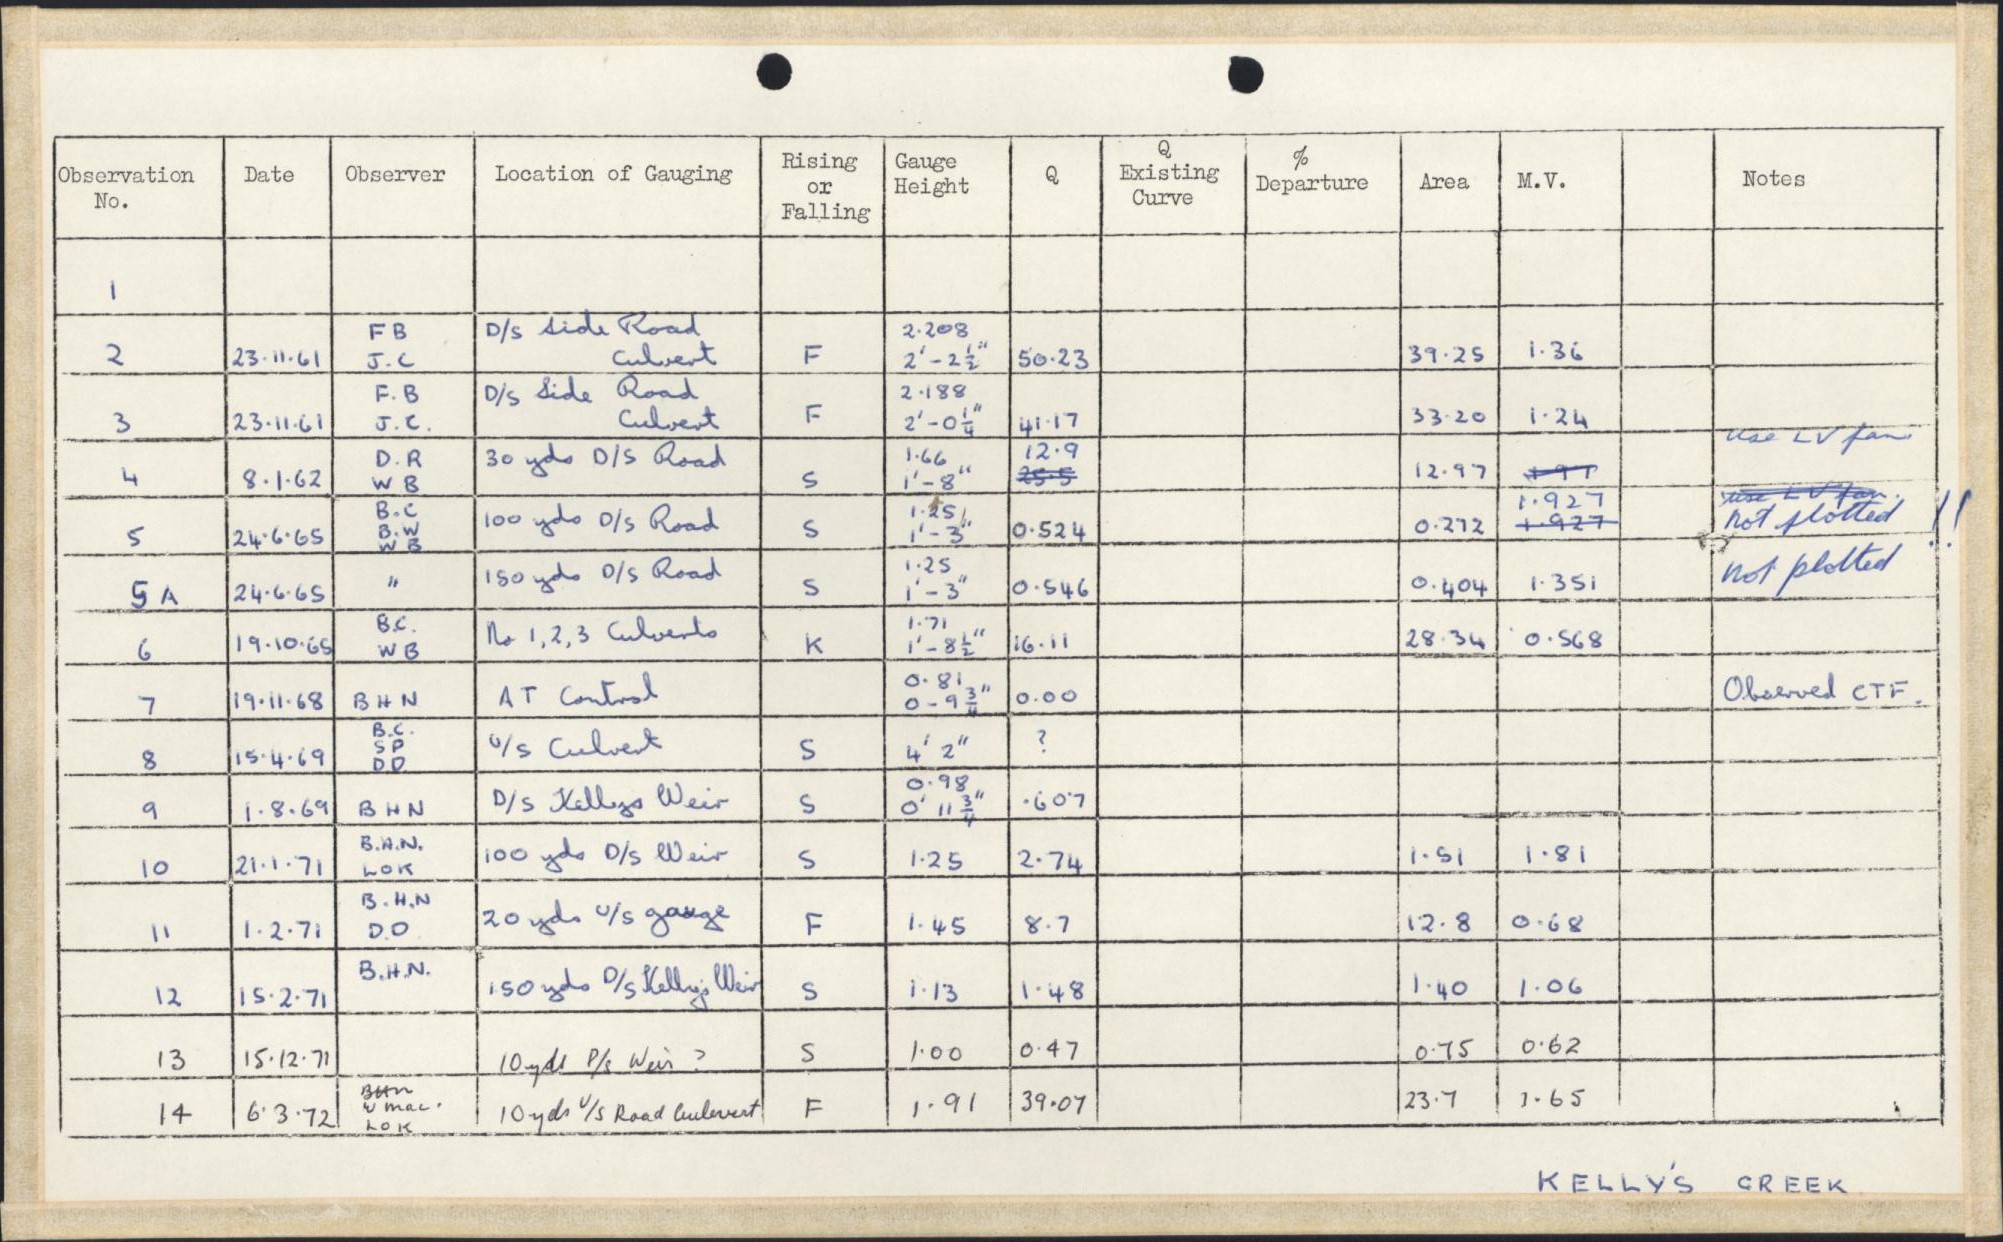 Observation No. Date Observer Location of Gauging Rising or Falling Gauge Height Q Q Existing Curve % Departure Area M.V. Notes
1
2 23.11.61 FB J.C D/S Side Road Culvert F 2.208 2'-2½" 50.23 39.25 1.36
3 23.11.61 F.B J.C. D/S Side Road Culvert F 2.188 2'-0¼" 41.17 33.20 1.24
4 8.1.62 D.R WB 30 yds D/S Road S 1.66 1'-8" 12.9 25.5 12.97 1.97 use LV fan
5 24.6.65 B.C B.W WB 100 yds D/S Road S 1.25 1'-3" 0.524 0.272 1.927 1.927 use LV fan. not plotted !!
5A 24.6.65 " 150 yds D/S Road S 1.25 1'-3" 0.546 0.404 1.351 not plotted
6 19.10.65 B.C. WB No 1,2,3 Culverts K 1.71 1'-8½" 16.11 28.34 0.568
7 19.11.68 BHN AT Control 0.81 0-9¾" 0.00 Observed CTF.
8 15.4.69 B.C. SP DD U/S Culvert S 4' 2" ?
9 1.8.69 BHN D/S Kellys Weir S 0.98 0' 11¾" .607
10 21.1.71 B.H.N. LOK 100 yds D/S Weir S 1.25 2.74 1.51 1.81
11 1.2.71 B.H.N D.O 20 yds U/S gauge F 1.45 8.7 12.8 0.68
12 15.2.71 B.H.N. 150 yds D/S Kelly's Weir S 1.13 1.48 1.40 1.06
13 15.12.71 10 yds D/S Weir ? S 1.00 0.47 0.75 0.62
14 6.3.72 BHN W Mac. LOK 10 yds U/S Road Culevert F 1.91 39.07 23.7 1.65
KELLY'S CREEK